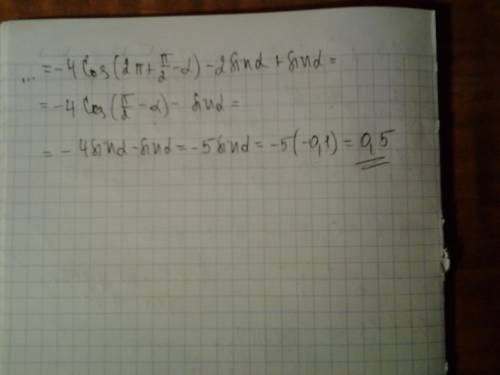 ... = -4 Cos(2π + π/2 - α) - 2 sin α + sin α =
= -4 Cos(π/2 - α) - sin α =
= - 4 sin α - sin α = -5 sin α = -5(-0,1) = 0,5